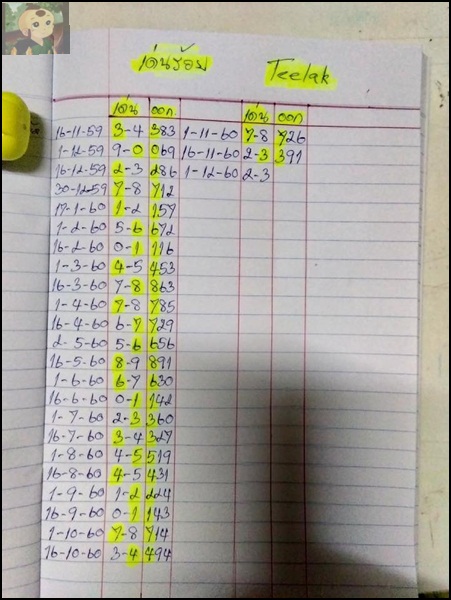 เด่นร้อย Teelak
เด่น ออก. เด่น ออก
16-11-59 3-4 383 1-11-60 7-8 726
1-12-59 9-0 069 16-11-60 2-3 391
16-12-59 2-3 286 1-12-60 2-3
30-12-59 7-8 712
17-1-60 1-2 157
1-2-60 5-6 672
16-2-60 0-1 116
1-3-60 4-5 453
16-3-60 7-8 863
1-4-60 7-8 785
16-4-60 6-7 729
2-5-60 5-6 656
16-5-60 8-9 891
1-6-60 6-7 630
16-6-60 0-1 142
1-7-60 2-3 360
16-7-60 3-4 327
1-8-60 4-5 519
16-8-60 4-5 431
1-9-60 1-2 224
16-9-60 0-1 143
1-10-60 7-8 714
16-10-60 3-4 494